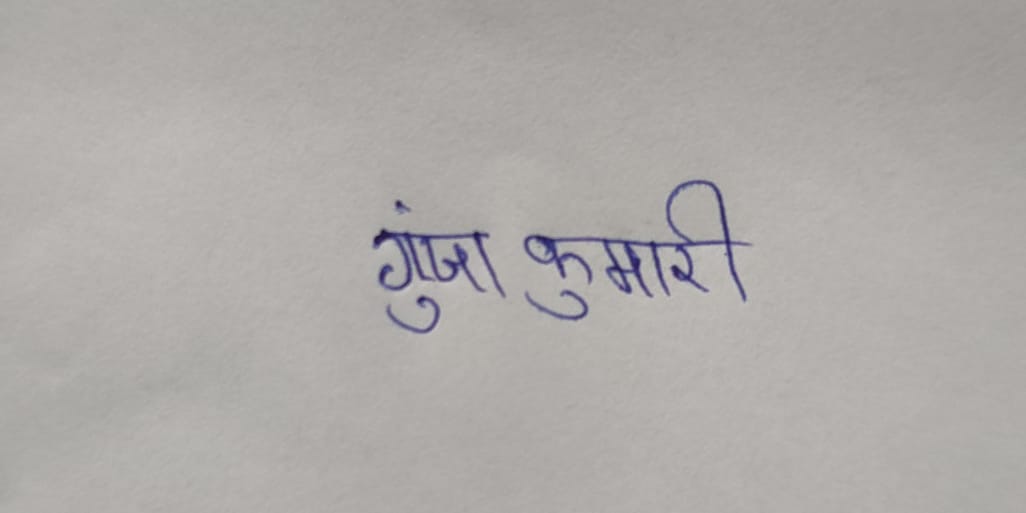 गुंजा कुमारी